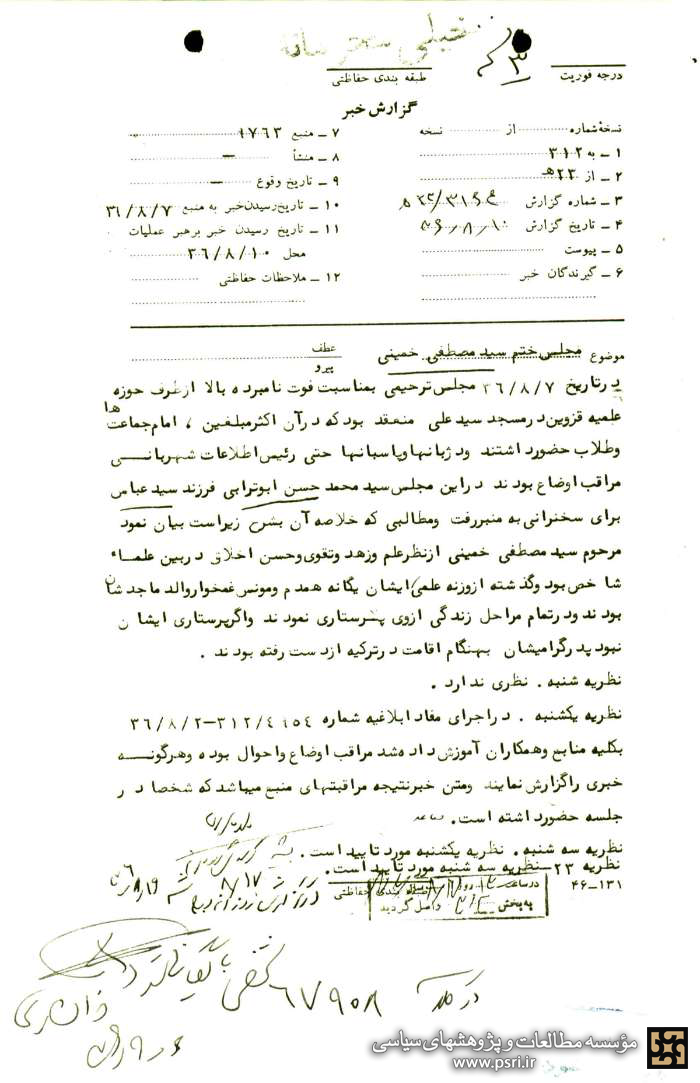 خیلی محرمانه
درجه فوریت
طبقه بندی حفاظتی
گزارش خبر
نسخهٔ شماره از نسخه
۱ – به ۳۱۲
۲ – از ۲۳ هـ
۳ – شماره گزارش
۴ – تاریخ گزارش
۵ – پیوست
۶ – گیرندگان خبر
۷ – منبع ۱۷۶۳
۸ – منشأ –
۹ – تاریخ وقوع –
۱۰ – تاریخ رسیدن خبر به منبع ۳۶/۸/۷
۱۱ – تاریخ رسیدن خبر برهبر عملیات
محل ۳۶/۸/۱۰
۱۲ – ملاحظات حفاظتی
موضوع مجلس ختم سید مصطفی خمینی
عطف
پیرو
در تاریخ ۳۶/۸/۷ مجلس ترحیمی بمناسبت فوت نامبرده بالا از طرف حوزه
علمیه قزوین در مسجد سید علی منعقد بود که در آن اکثر مبلغین ، امام جماعت ها
وطلاب حضور داشتند ودژبانها وپاسبانها حتی رئیس اطلاعات شهربانی
مراقب اوضاع بودند در این مجلس سید محمد حسن ابوترابی فرزند سید عباس
برای سخنرانی به منبر رفت ومطالبی که خلاصه آن بشرح زیر است بیان نمود
مرحوم سید مصطفی خمینی از نظر علم وزهد وتقوی وحسن اخلاق در بین علماء
شاخص بود وگذشته از وزنه علمی ایشان یگانه همدم ومونس غمخوار والد ماجدشان
بودند ودر تمام مراحل زندگی از وی پرستاری نمودند واگر پرستاری ایشان
نبود پدر گرامیشان بهنگام اقامت در ترکیه از دست رفته بودند .
نظریه شنبه . نظری ندارد .
نظریه یکشنبه . در اجرای مفاد ابلاغیه شماره ۳۱۲/۴۱۵۴–۳۶/۸/۲
بکلیه منابع وهمکاران آموزش داده شد مراقب اوضاع واحوال بوده وهرگونه
خبری را گزارش نمایند ومتن خبر نتیجه مراقبتهای منبع میباشد که شخصا در
جلسه حضور داشته است .
نظریه سه شنبه . نظریه یکشنبه مورد تایید است .
نظریه ۲۳ – نظریه سه شنبه مورد تایید است .
۴۶–۱۳۱
طبقه بندی حفاظتی
در ساعت روز
به پخش واصل گردید
۶۷۹۰۸
مؤسسه مطالعات و پژوهشهای سیاسی
www.psri.ir